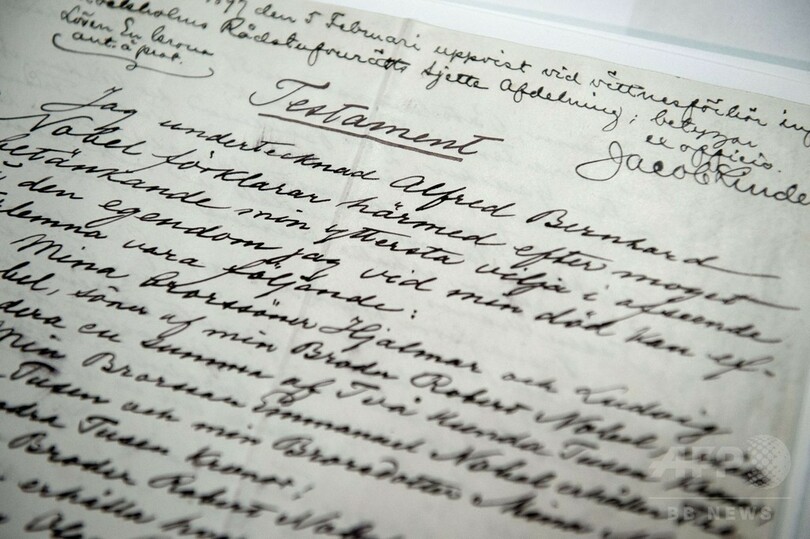 1897 den 5 Februari uppvist vid vittnesförhör inf
Stockholms Rådstufvurätts sjette Afdelning; betygar
Lösen En krona
ex officio.
Jacob Linde
Testament
Jag undertecknad Alfred Bernhard
Nobel förklarar härmed efter moget
betänkande min yttersta vilja i afseende
å den egendom jag vid min död kan ef-
terlemna vara följande:
Mina Brorssöner Hjalmar och Ludvig
bel, söner af min Broder Robert Nobel
en summa af Två Hundra Tusen
Min Brorson Emmanuel Nobel erhåller
Tusen och min Brorsdotter Mina
dra Tusen Kronor;
Broder Robert
erhålla
AFP
BB NEWS